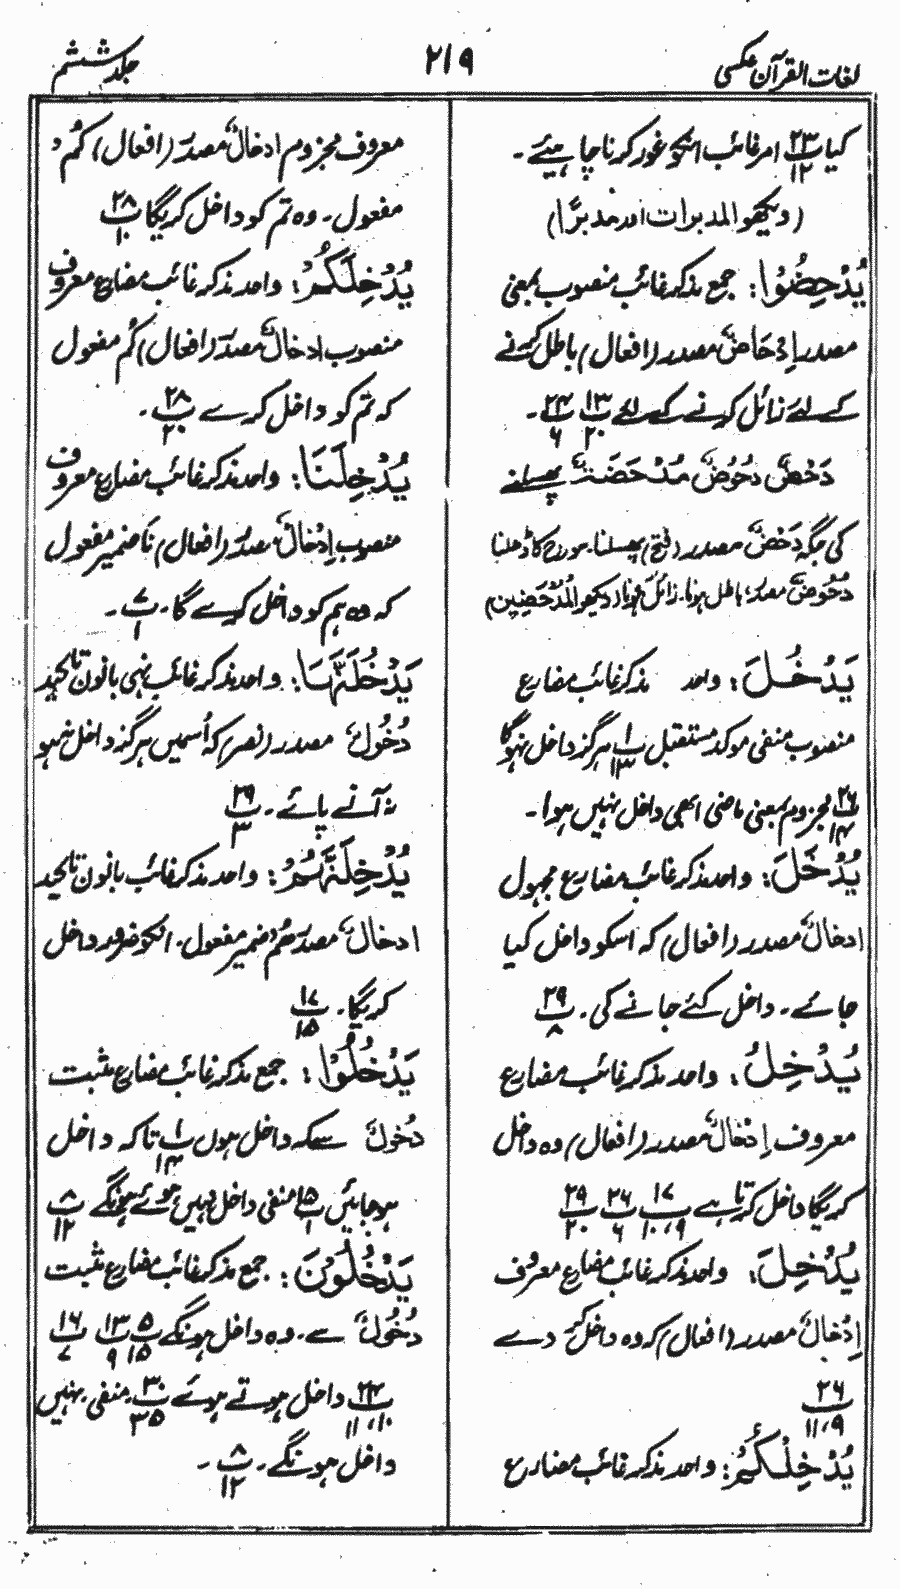 لغات القرآن عکسی
۲۱۹
جلد ششم
کیا ۲۳/۱۲ امر غائب اسکو غور کرنا چاہیئے۔
(دیکھو المدبرات اور مدبرًا)
یُدْحِضُوْا: جمع مذکر غائب منصوب بمعنی
مصدر اِدْحَاضٌ مصدر (افعال) باطل کرنے
کے لئے زائل کرنے کے لئے ۱۳/۲۰ ۲۴/۶۔
دَحْضٌ دُحُوْضٌ مَدْحَضَۃٌ پھسلنے
کی جگہ دَحْضٌ مصدر (فتح) پھسلنا۔ سورج کا ڈھلنا
دُحُوْضٌ مصدر؛ باطل ہونا۔ زائل ہونا (دیکھو المُدْحَضِیْن)
یَدْخُلَ: واحد مذکر غائب مضارع
منصوب منفی موکد مستقبل ۱/۱۳ ہرگز داخل نہوگا
۲۶/۱۴ مجزوم بمعنی ماضی ابھی داخل نہیں ہوا۔
یُدْخَلَ: واحد مذکر غائب مضارع مجہول
ادخالٌ مصدر (افعال) کہ اسکو داخل کیا
جائے۔ داخل کئے جانے کی۔ ۲۹/۸
یُدْخِلُ: واحد مذکر غائب مضارع
معروف اِدْخَالٌ مصدر (افعال) وہ داخل
کریگا داخل کرتا ہے ۱۷/۱۰،۹ ۲۶/۶ ۲۹/۲۰
یُدْخِلَ: واحد مذکر غائب مضارع معروف
اِدْخَالٌ مصدر (افعال) کہ وہ داخل کر دے
۲۶/۱۱،۹
یُدْخِلْکُمْ: واحد مذکر غائب مضارع
معروف مجزوم ادخالٌ مصدر (افعال) کُم
مفعول۔ وہ تم کو داخل کریگا ۲۸/۱۰
یُدْخِلَکُمْ: واحد مذکر غائب مضارع معروف
منصوب ادخالٌ مصدر (افعال) کُم مفعول
کہ تم کو داخل کرے ۲۸/۲۰۔
یُدْخِلَنَا: واحد مذکر غائب مضارع معروف
منصوب اِدْخَالٌ مصدر (افعال) نَا ضمیر مفعول
کہ وہ ہم کو داخل کرے گا۔ ۷/۱۔
یَدْخُلَنَّہَا: واحد مذکر غائب نہی بانون تاکید
دُخُولٌ مصدر (نصر) کہ اُسمیں ہرگز داخل نہ ہو
نہ آنے پائے۔ ۲۹/۳
یُدْخِلَنَّہُمْ: واحد مذکر غائب بانون تاکید
ادخالٌ مصدر ھُم ضمیر مفعول۔ انکو ضرور داخل
کریگا۔ ۱۷/۱۵
یَدْخُلُوْا: جمع مذکر غائب مضارع مثبت
دُخولٌ سے کہ داخل ہوں ۱/۱۴ تا کہ داخل
ہو جائیں ۱۵/۱ منفی داخل نہیں ہوئے ہونگے ۸/۱۲
یَدْخُلُوْنَ: جمع مذکر غائب مضارع مثبت
دُخُولٌ سے۔ وہ داخل ہونگے ۵/۱۵ ۱۳/۹ ۱۶/۷
۲۴/۱۱،۱۰ داخل ہوتے ہوئے ۳۰/۳۵۔ منفی نہیں
داخل ہونگے۔ ۸/۱۲۔